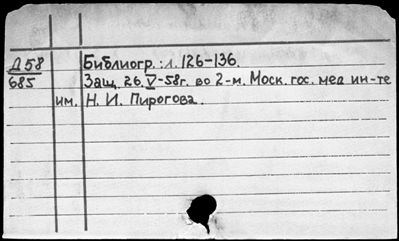 Д 58 Библиогр.: л. 126-136.
685 Защ. 26.V-58г. во 2-м. Моск. гос. мед ин-те
им. Н. И. Пирогова.